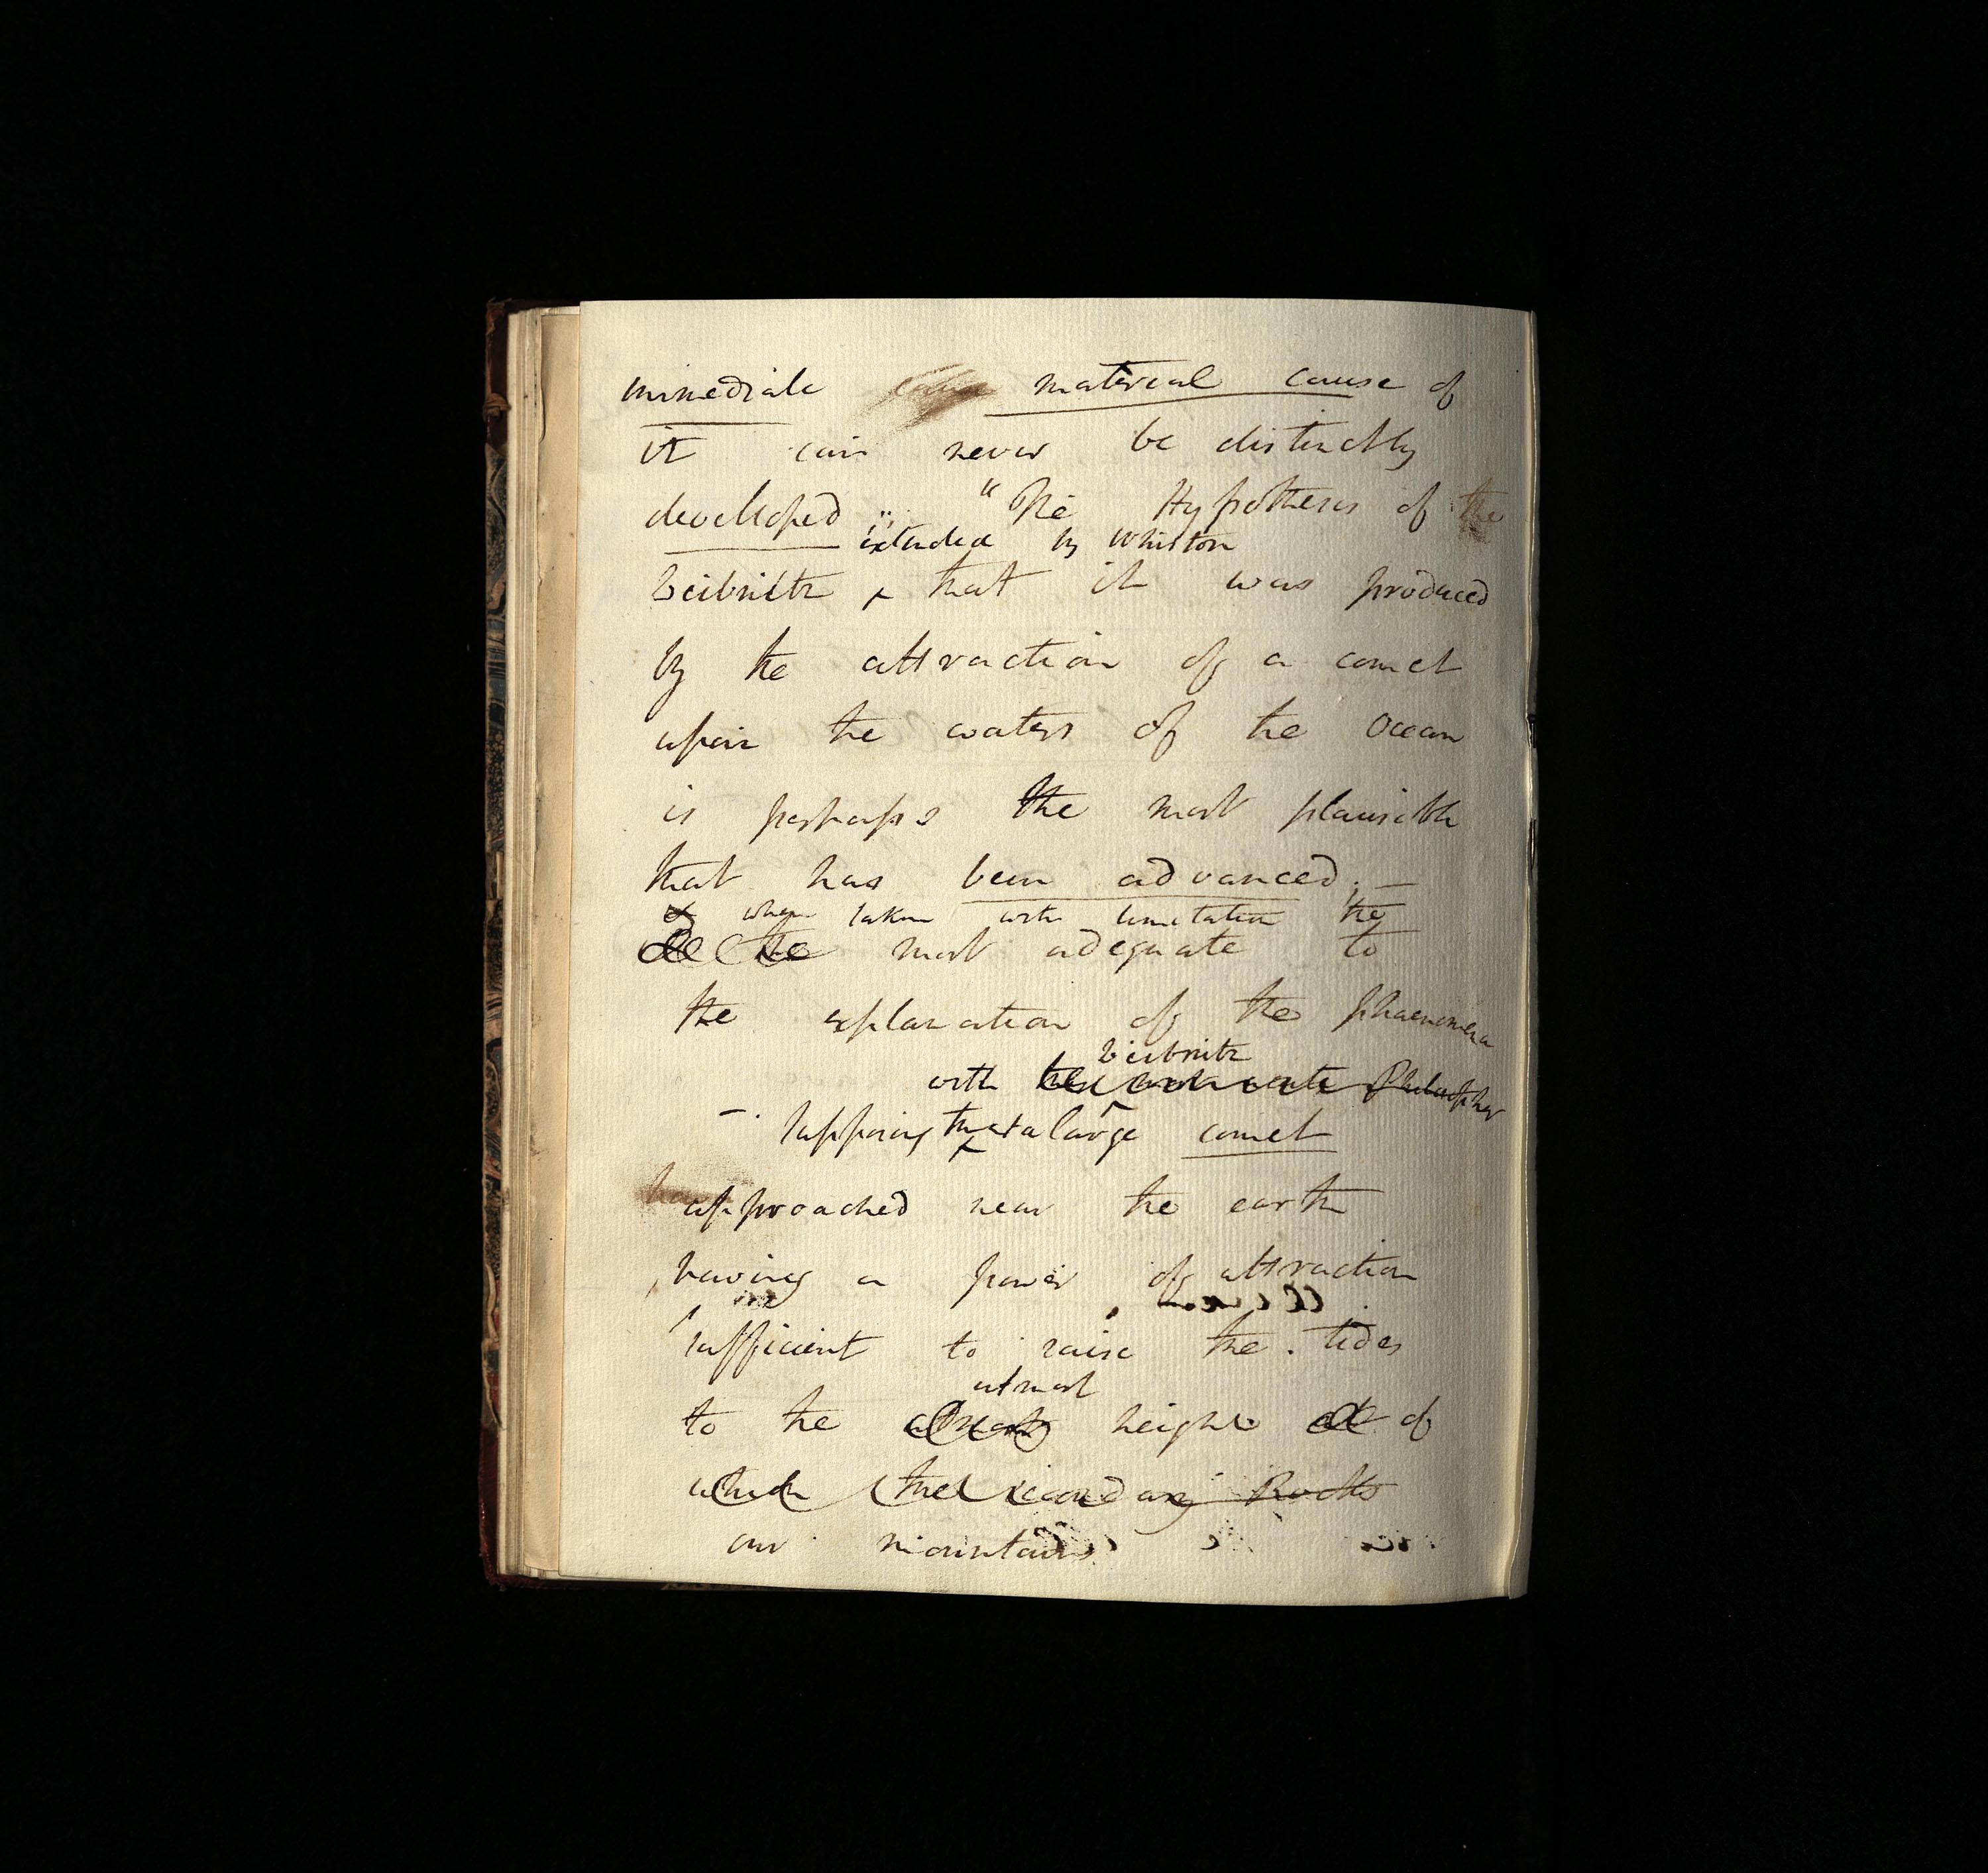 immediate material cause of
it can never be distinctly
developed". "The Hypothesis of the
extended by Whiston
Leibnitz ‸ that it was produced
by the attraction of a comet
upon the waters of the Ocean
is perhaps the most plausible
that has been advanced; —
& when taken with limitation the
most adequate to
the explanation of the phaenomena
Leibnitz
with Philosopher
–. supposing that a large comet
approached near the earth
, having a power of attraction
sufficient to raise the tides
utmost
to the utmost height of
which the secondary Rocks
our mountains